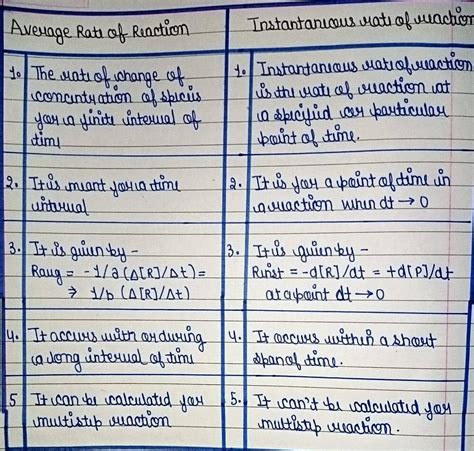 Average Rate of Reaction
Instantaneous rate of reaction
1. The rate of change of
concentration of species
for a finite interval of
time
1. Instantaneous rate of reaction
is the rate of reaction at
a specified or particular
point of time.
2. It is meant for a time
interval
2. It is for a point of time in
a reaction when dt → 0
3. It is given by -
Ravg = -1/a (Δ[R]/Δt) =
⇒ 1/b (Δ[R]/Δt)
3. It is given by -
Rinst = -d[R]/dt = +d[P]/dt
at a point dt → 0
4. It occurs with or during
a long interval of time
4. It occurs within a short
span of time.
5 It can be calculated for
multistep reaction
5. It can't be calculated for
multistep reaction.